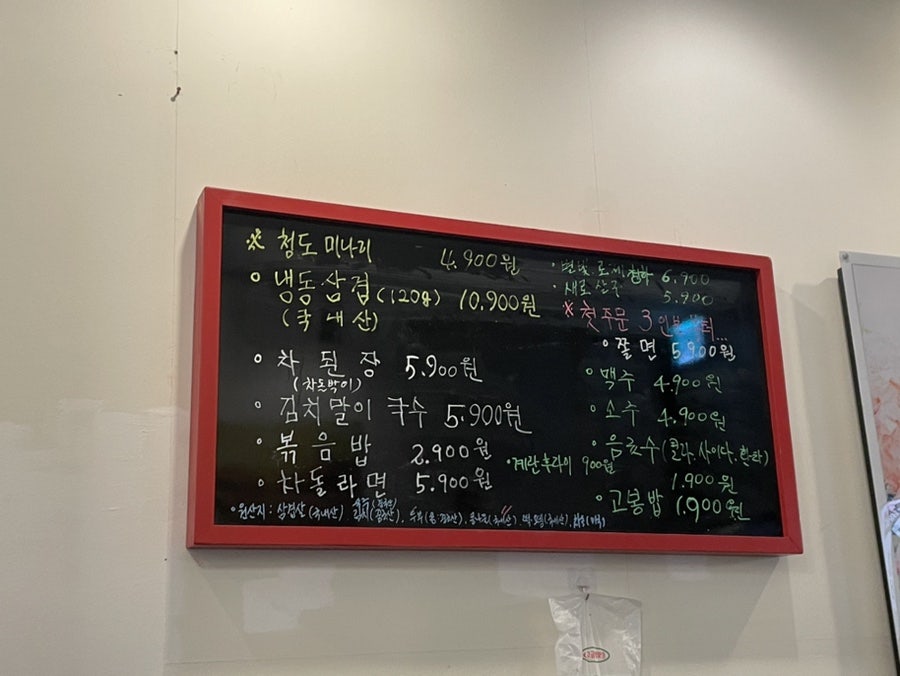 ※ 청도 미나리 4.900원
◦ 냉동삼겹(120g) 10.900원
(국내산)
◦ 차 된 장 5.900원
(차돌박이)
◦ 김치말이 국수 5.900원
◦ 볶음밥 2.900원
◦ 차돌라면 5.900원
• 계란후라이 900원
• 별빛 청하 6.900
• 새로 5.900
※ 첫주문 3인분부터...
◦ 쫄면 5.900원
◦ 맥주 4.900원
◦ 소주 4.900원
◦ 음료수(콜라.사이다.환타)
1.900원
◦ 고봉밥 1.900원
◦ 원산지: 삼겹살(국내산)